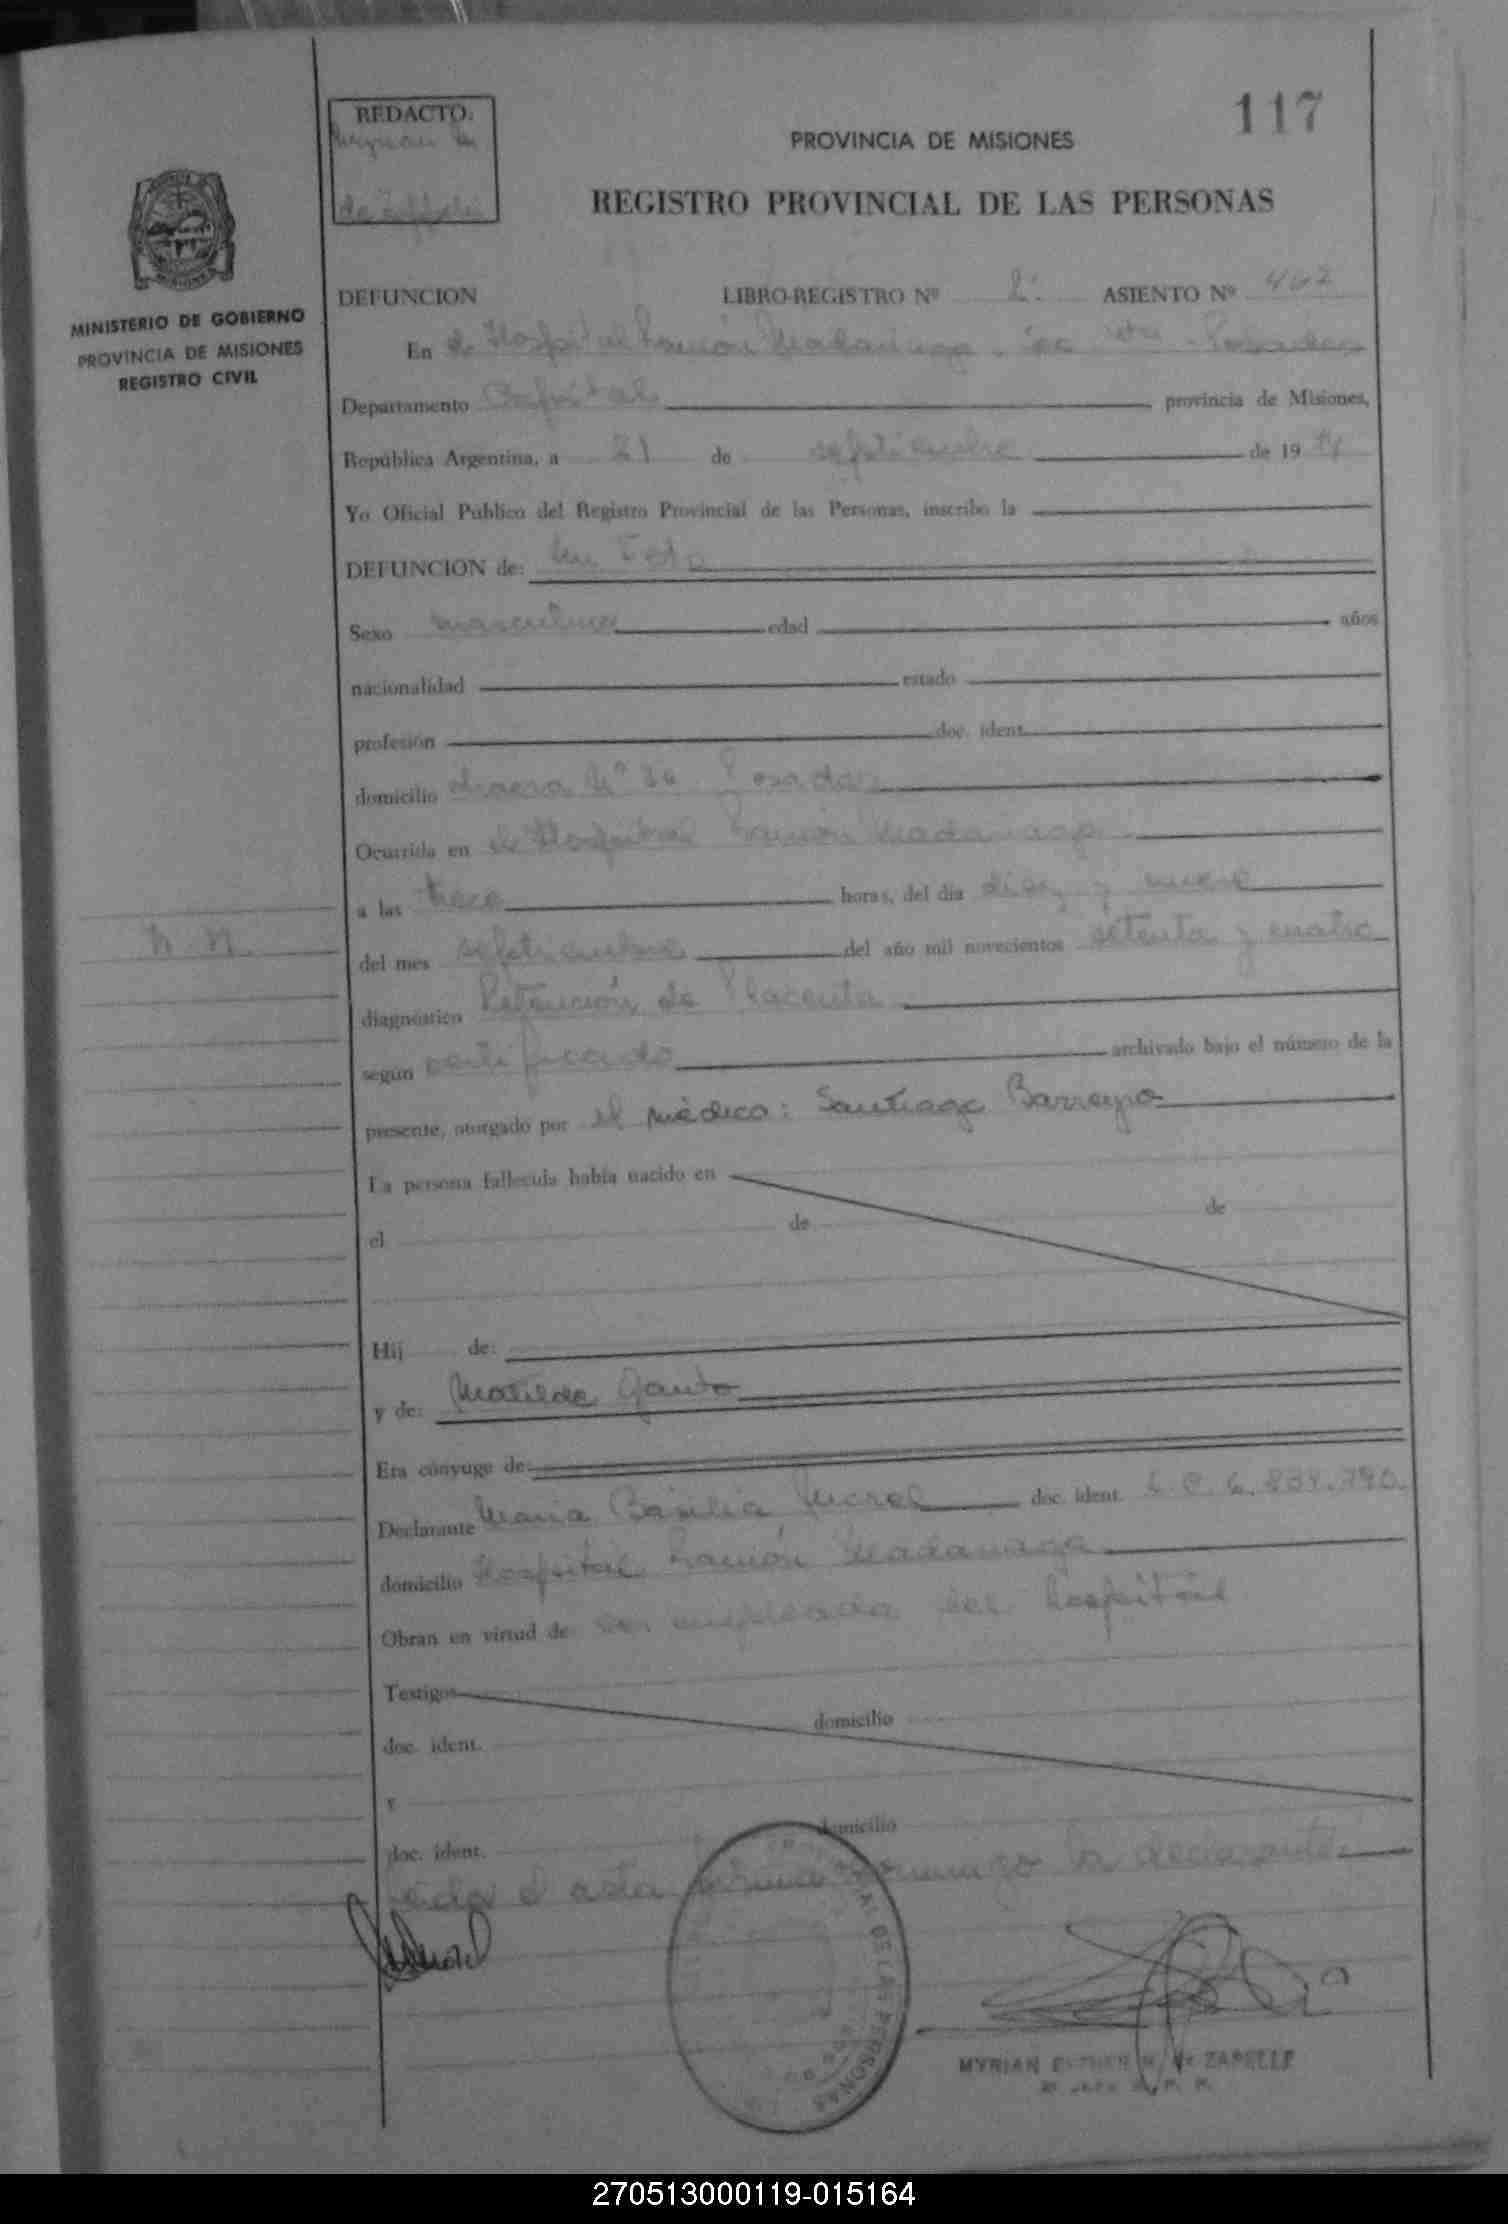 117
REDACTO:
PROVINCIA DE MISIONES
REGISTRO PROVINCIAL DE LAS PERSONAS
MINISTERIO DE GOBIERNO
PROVINCIA DE MISIONES
REGISTRO CIVIL
DEFUNCION LIBRO-REGISTRO Nº 2º ASIENTO Nº 467
En el Hospital Ramón Madariaga - Posadas
Departamento Capital provincia de Misiones,
República Argentina, a 21 de septiembre de 1974
Yo Oficial Público del Registro Provincial de las Personas, inscribo la
DEFUNCION de: Un Feto
Sexo masculino edad años
nacionalidad estado
profesión doc. ident.
domicilio chacra Nº 34 Posadas
Ocurrida en el Hospital Ramón Madariaga
a las trece horas, del día diez y nueve
N. N.
del mes septiembre del año mil novecientos setenta y cuatro
diagnóstico Retención de Placenta
según certificado archivado bajo el número de la
presente, otorgado por el médico: Santiago Barreyro
La persona fallecida había nacido en
el de de
Hij de:
y de: Matilde Gauto
Era cónyuge de:
Declarante María Basilia doc. ident. L.C. 6.839.790.
domicilio Hospital Ramón Madariaga
Obran en virtud de ser empleada del hospital
Testigos
domicilio
doc. ident.
y
domicilio
doc. ident.
Leída el acta firma conmigo la declarante.
DE LAS PERSONAS
MYRIAN ESTHER N. de ZAPELLI
270513000119-015164